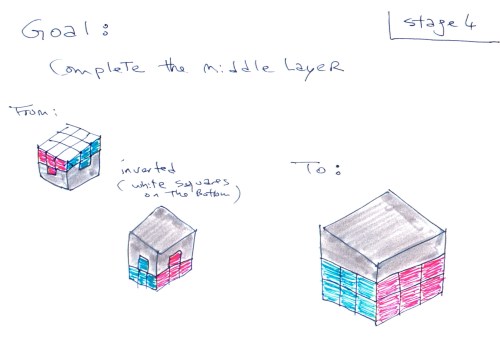 Goal:
stage 4
Complete the middle Layer
From:
inverted
(white squares
on The Bottom)
To: